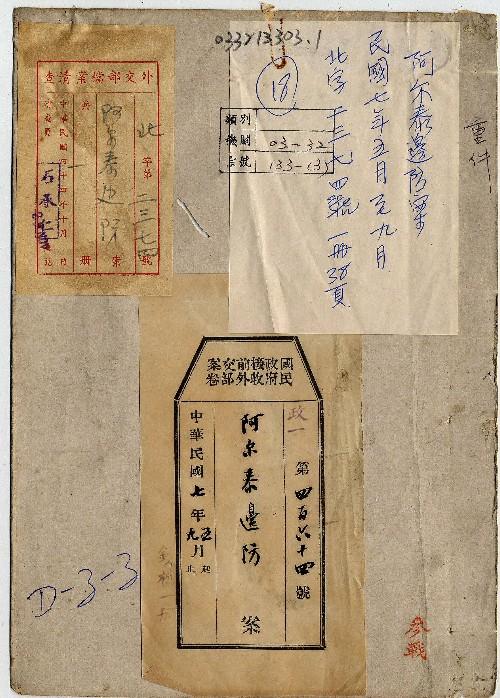 033213303.1
18
阿尔泰邊防案
民國七年五月至九月
北字二三七四號 一冊38頁
重件
類別
機關 03-32
宗號 133-(3)
外交部檔案清查
北字第二三七四號
阿尔泰边防
案 冊
中華民國四十四年十月 日
石承仁
國民政府接收前外交部案卷
政一
第四百六十四號
阿尔泰邊防案
中華民國七年五月起九月止
D-3-3
參戰